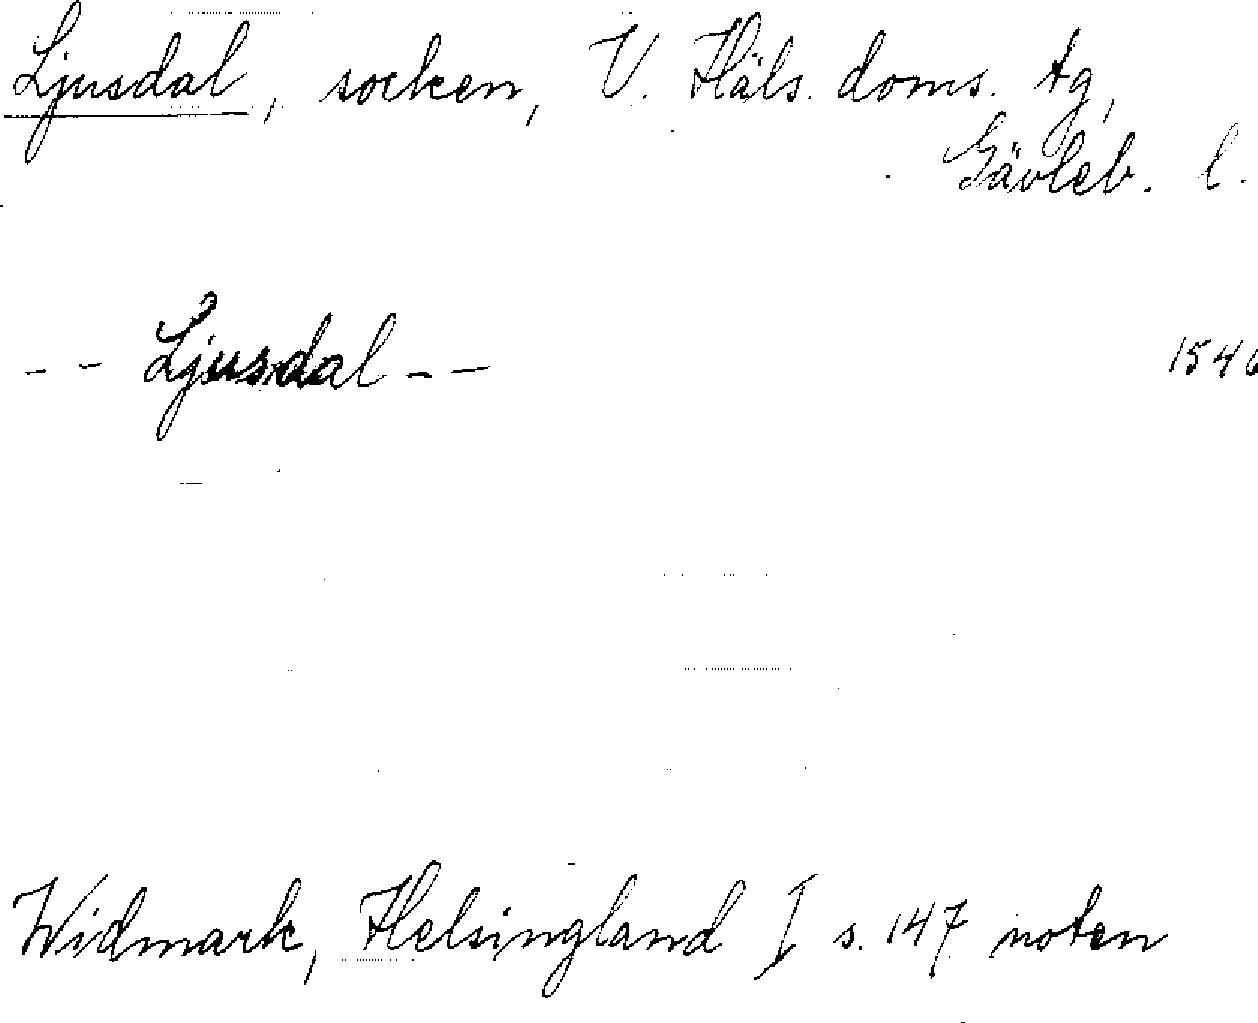 Ljusdal, socken, V. Häls. doms. tg,
Gävleb. l.
-- Ljusdal --
1546
Widmark, Helsingland I s. 147 noten